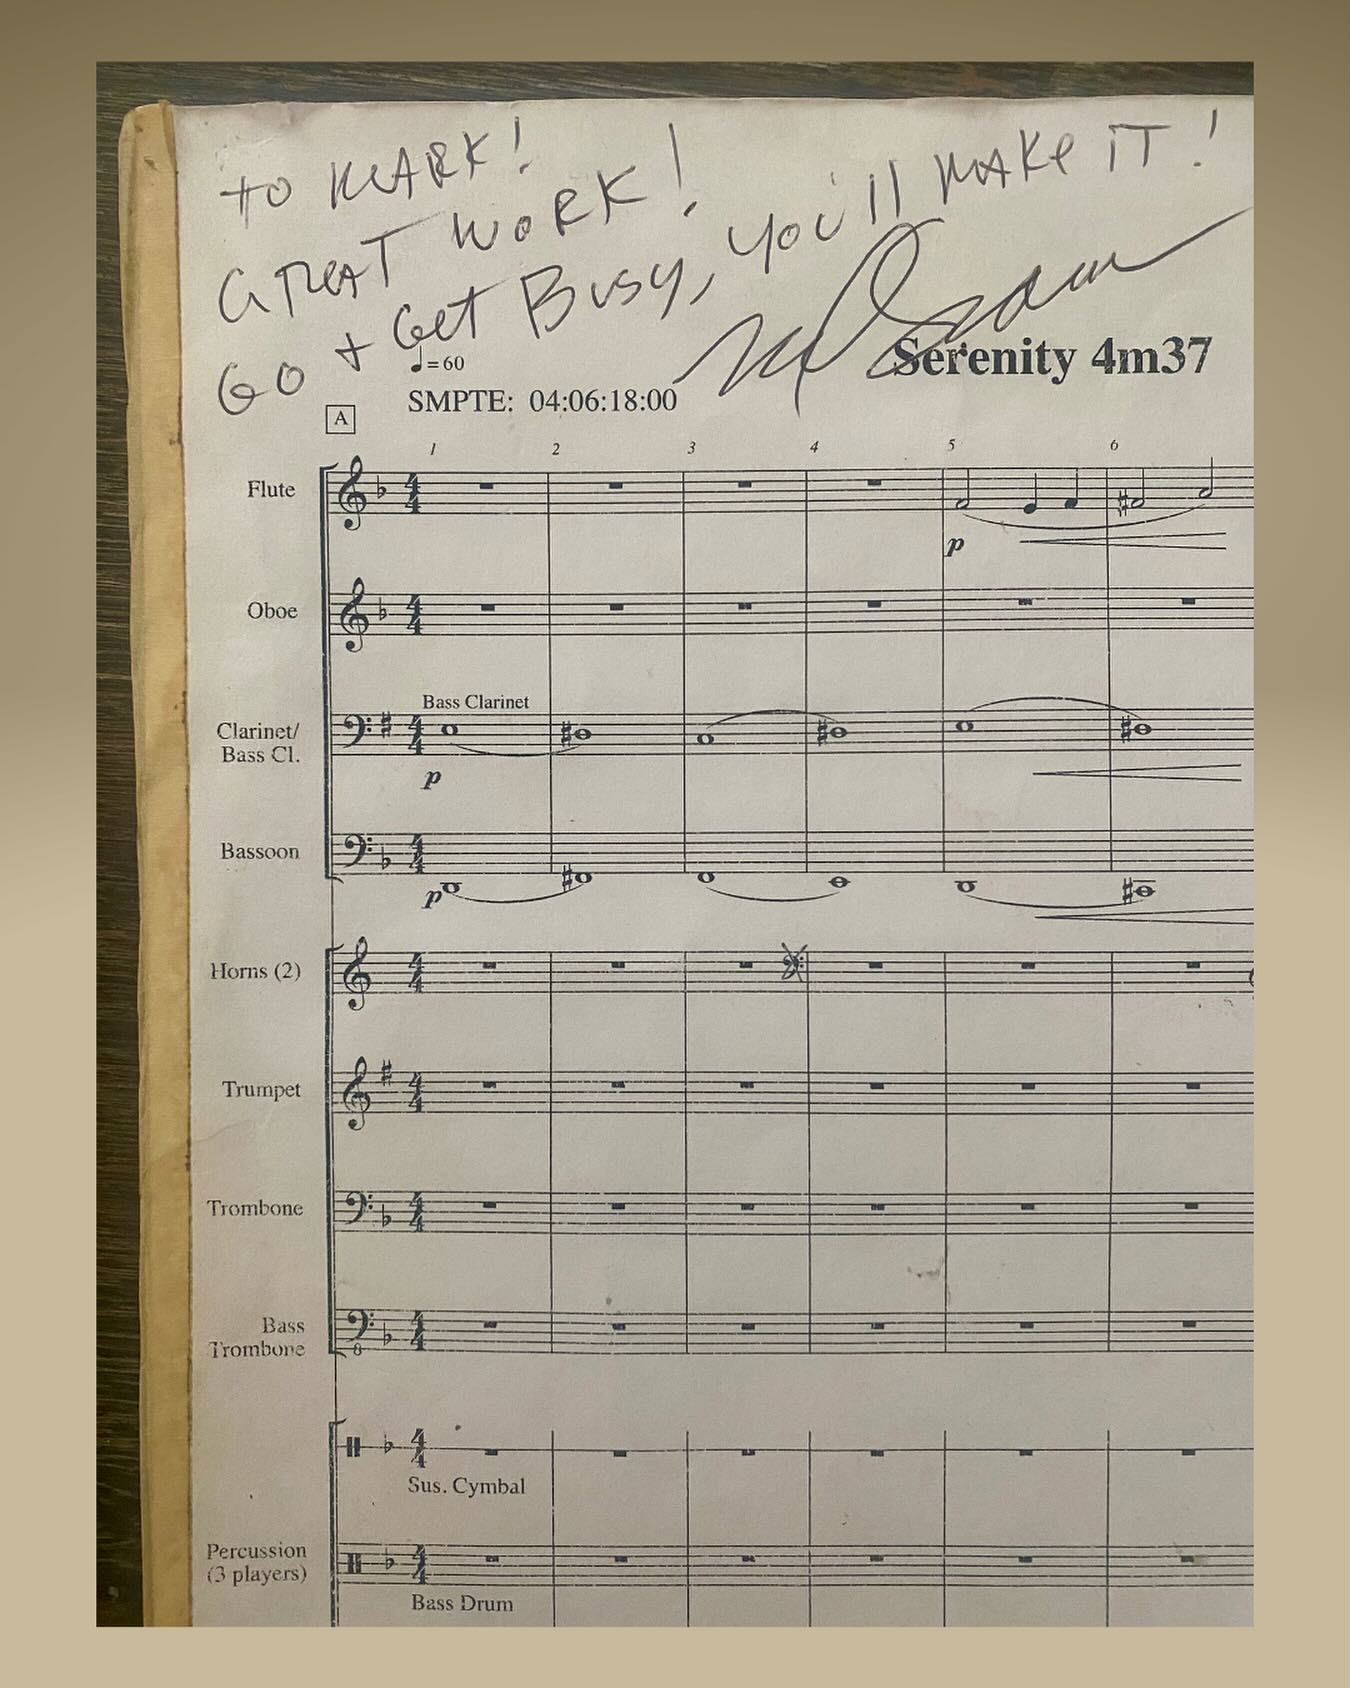 to MARK!
GREAT WORK!
GO + Get Busy, you'll MAKe iT!
♩=60
Serenity 4m37
SMPTE: 04:06:18:00
A
1 2 3 4 5 6
Flute
p
Oboe
Bass Clarinet
Clarinet/
Bass Cl.
p
Bassoon
p
Horns (2)
Trumpet
Trombone
Bass
Trombone
8
Sus. Cymbal
Percussion
(3 players)
Bass Drum